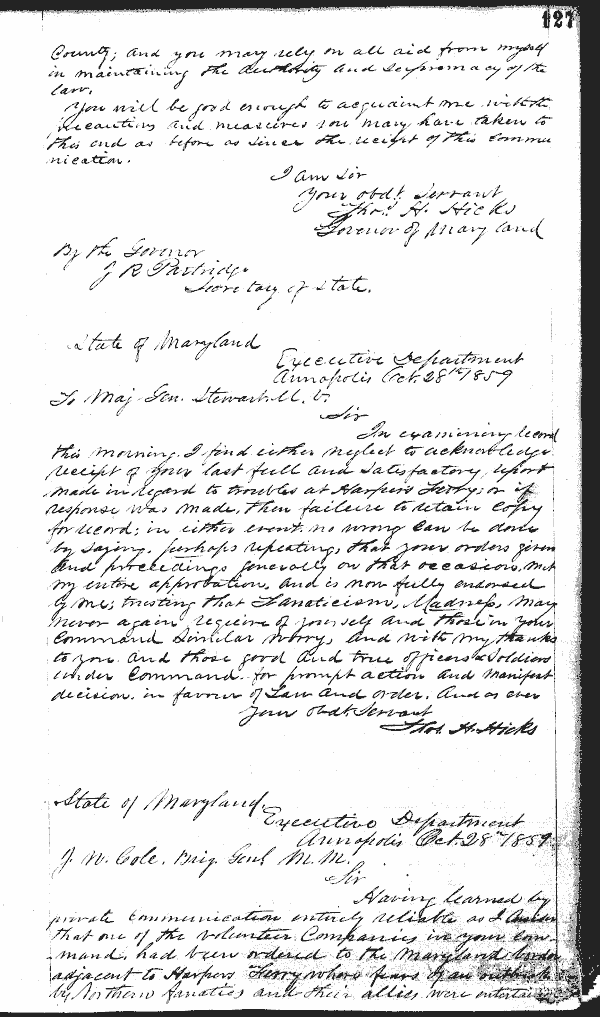 127
County; and you may rely on all aid from myself
in maintaining the authority and supremacy of the
law.
You will be good enough to acquaint me with the
precautions and measures you may have taken to
this end as before as since the receipt of this commu
nication.
I am Sir
Your obdt. Servant
Thos. H. Hicks
Govenor of Maryland
By the Govenor
J R Partridge
Secretary of State.
State of Maryland
Executive Department
Annapolis Oct. 28th 1859
To Maj. Gen. Stewart. U.
Sir
In examining record
this morning. I find either neglect to acknowledge
receipt of your last full and satisfactory, report
made in regard to troubles at Harpers Ferry; or if
response was made, then failure to retain copy
for record; in either event. no wrong can be done
by saying. perhaps repeating, that your orders given
and proceedings generally on that occasion, met
my entire approbation, and is now fully endorsed
by me; trusting that Fanaticism, Madness, may
never again require of yourself and those in your
Command Similar worry, and with my thanks
to you and those good and true officers & Soldiers
under Command. for prompt action and manifest
decision. in favour of Law and order. And as ever
Your obdt Servant
Thos. H. Hicks
State of Maryland.
Executive Department
Annapolis Oct. 28th 1859.
J. W. Cole. Brig. Genl M. M.
Sir
Having learned by
private Communication entirely reliable as I
that one of the volunteer Companies in your com-
-mand, had been ordered to the Maryland border
adjacent to Harpers Ferry where fears of an outbreak
by Northern fanatics and their allies were